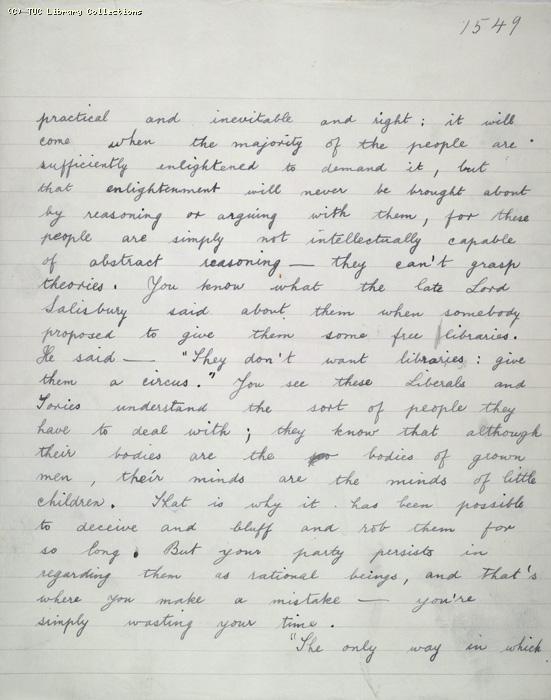 (C) TUC Library Collections
1549
practical and inevitable and right: it will
come when the majority of the people are
sufficiently enlightened to demand it, but
that enlightenment will never be brought about
by reasoning or arguing with them, for these
people are simply not intellectually capable
of abstract reasoning — they can't grasp
theories. You know what the late Lord
Salisbury said about them when somebody
proposed to give them some free libraries.
He said — "They don't want libraries: give
them a circus." You see these Liberals and
Tories understand the sort of people they
have to deal with; they know that although
their bodies are the bodies of grown
men, their minds are the minds of little
children. That is why it has been possible
to deceive and bluff and rob them for
so long. But your party persists in
regarding them as rational beings, and that's
where you make a mistake — you're
simply wasting your time.
"The only way in which